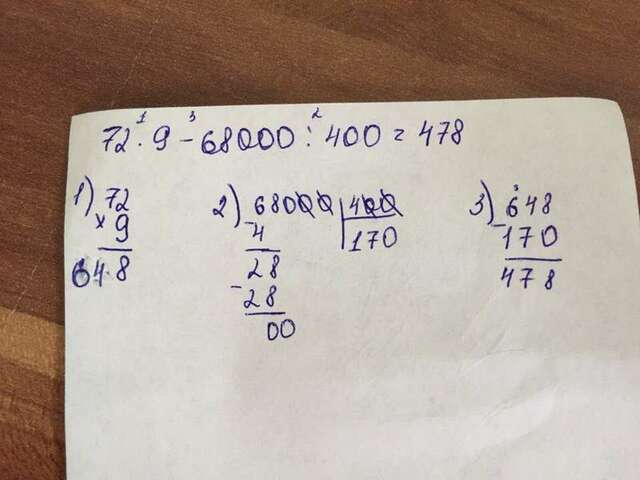 72 · 9 - 68000 : 400 = 478
1 3 2
1) 72
× 9
648
2) 68000 400
- 4 170
28
- 28
00
3) - 648
170
478